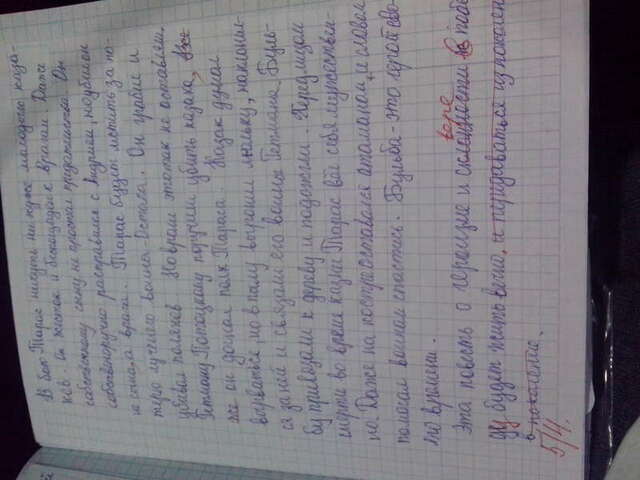 В бою Тарас ничуть ни хуже молодых каза-
ков. Он жесток и беспощаден к врагам. Даже
собственному сыну не простил предательства. Он
собственоручно расправился с Андрием, но убил он
не сына, а врага. Тарас будет мстить за по-
терю лучшего воина - Остапа. Он грабил и
убивал поляков. Но враги это так не оставляли.
Гетману Потоцкому поручили убить казака,
же он догнал полк Тараса. Казак думал
вырваться, но в пылу выронил люльку, наклонил-
ся за ней и связали его воины Гетмана. Буль-
бу привязали к дереву и подожгли. Перед лицом
смерти во время казни Тарас вёл себя мужествен-
но. Даже на костре оставался атаманом, и словом
помогал воинам спастись. Бульба - это герой сво-
его времени.
вере
Эта повесть о героизме и склонности в побе
ду будет жить вечно, и передаваться из поколен
в поколение.
5/4.